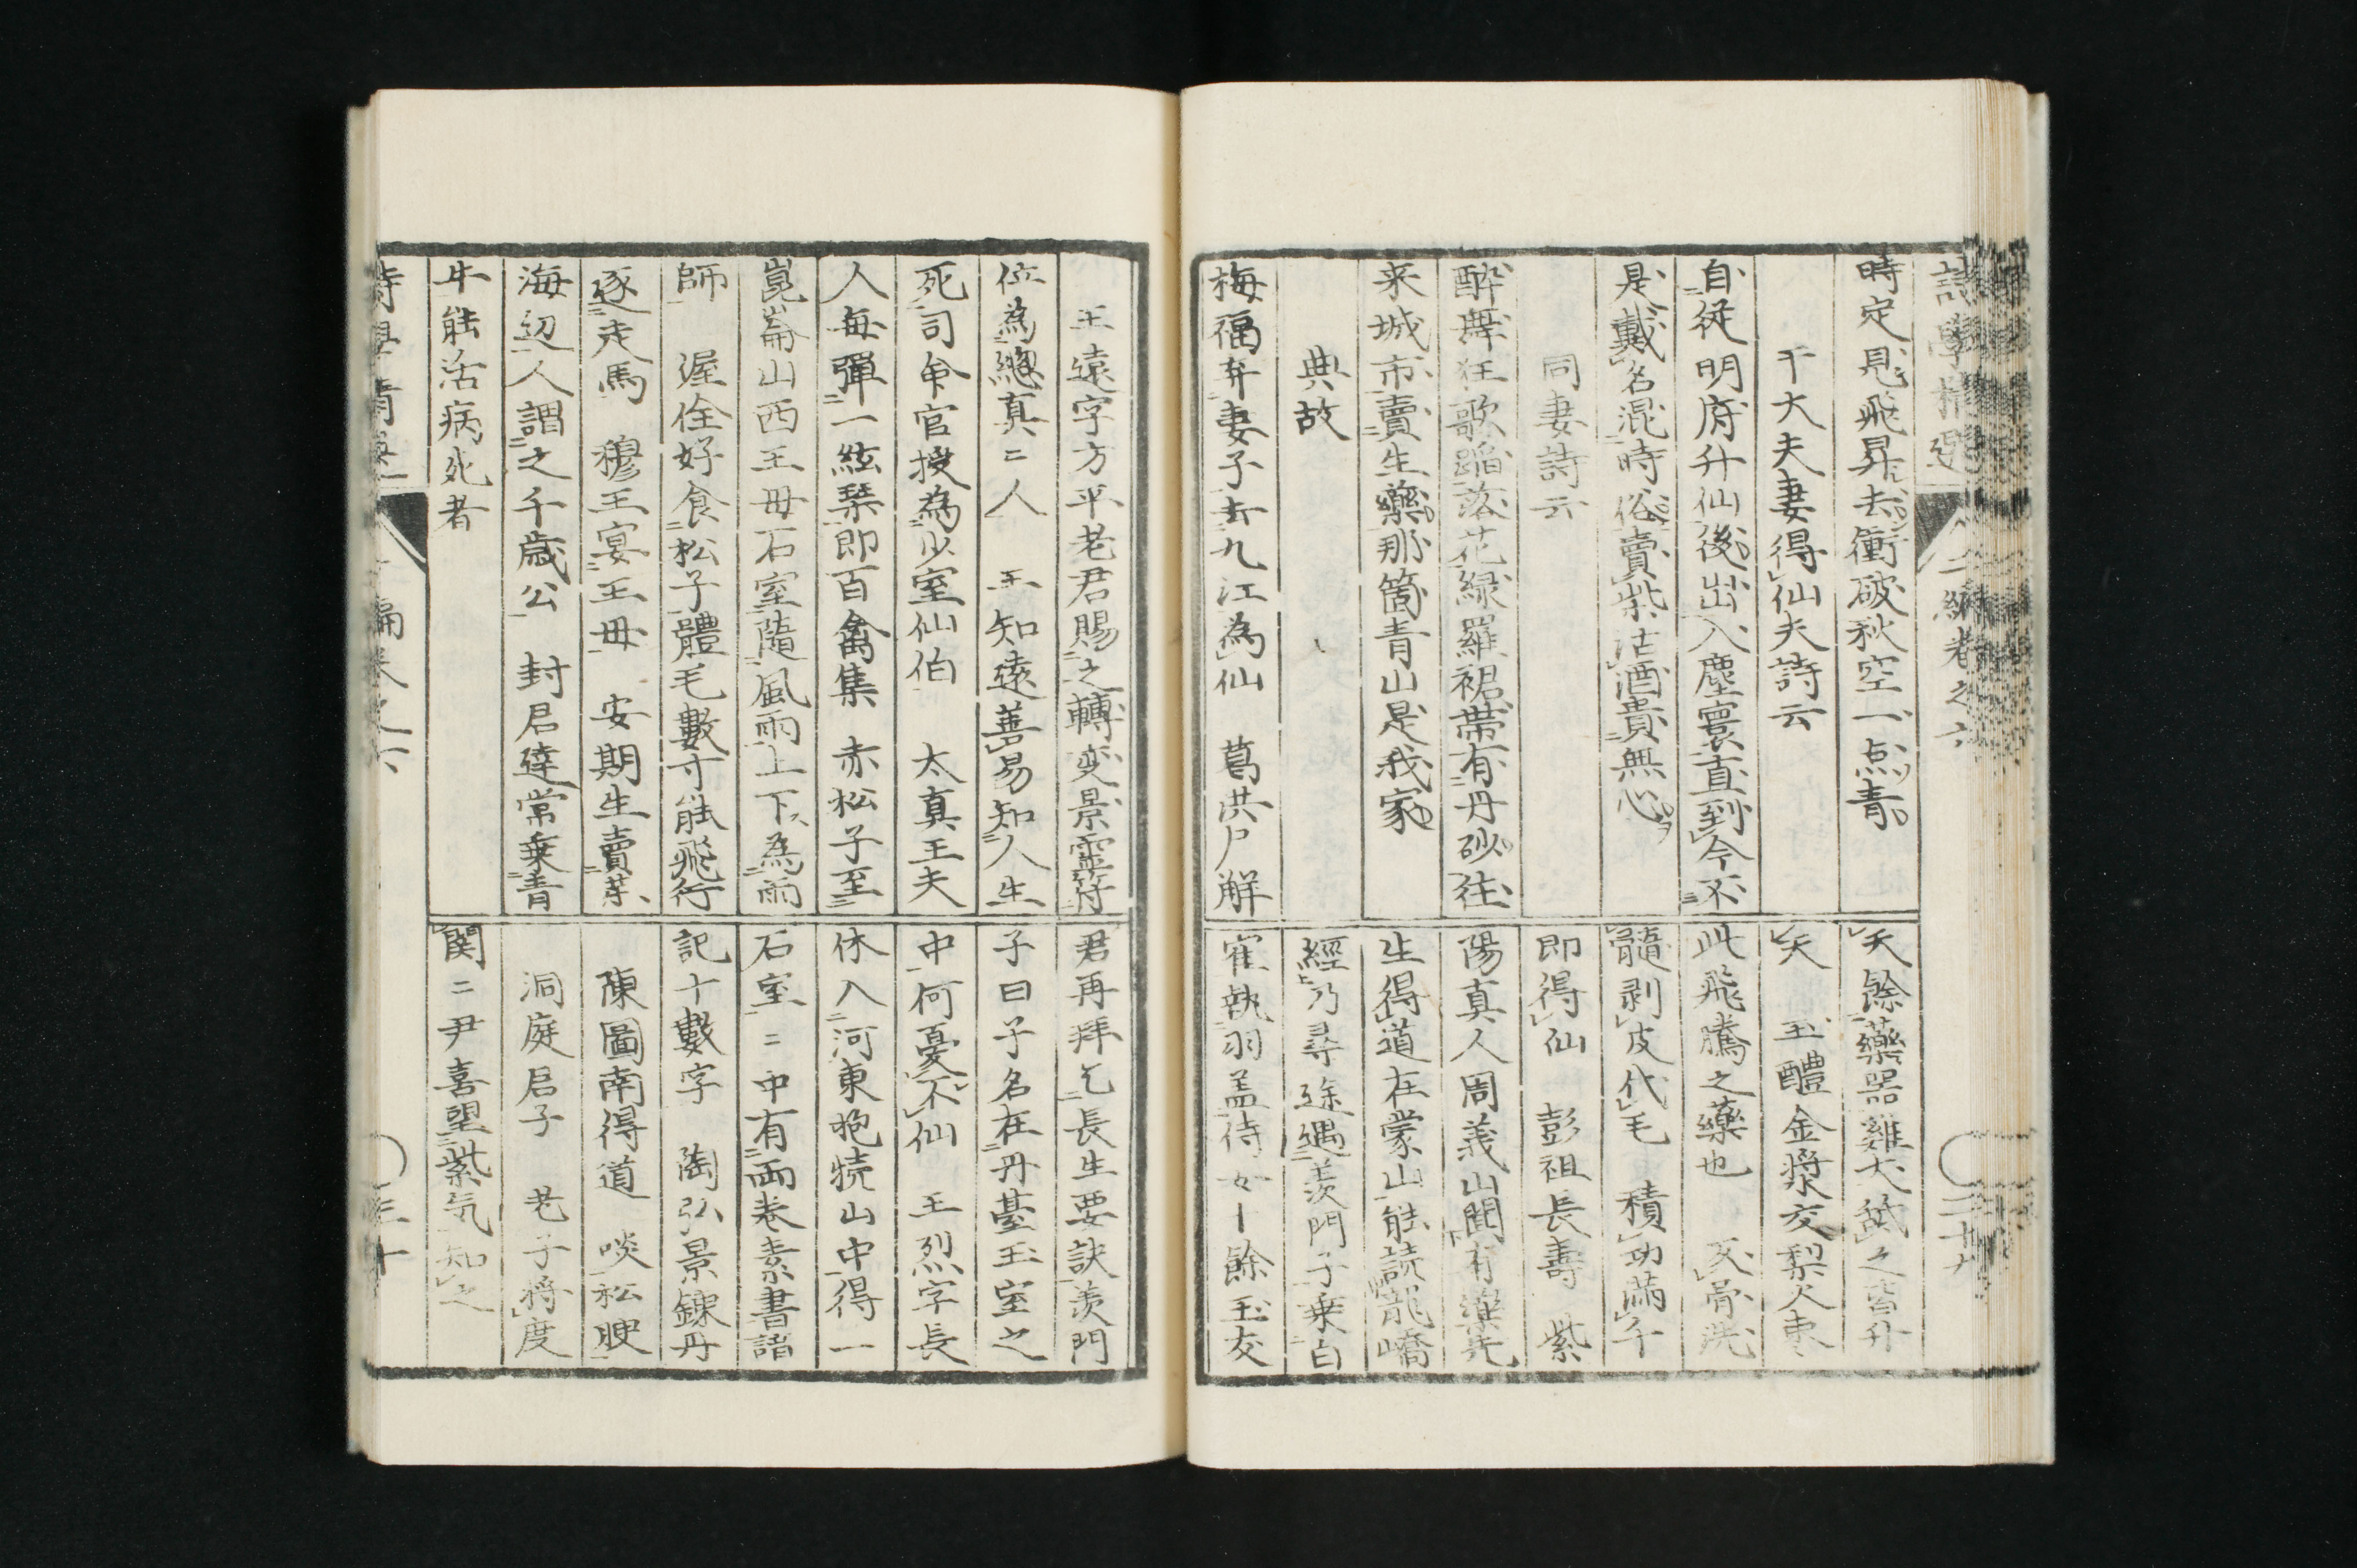 時定見飛昇去衝破秋空一点青
干大夫妻得仙夫詩云
自從明府升仙後出入塵寰直到今不
是戴名混時俗賣柴沽酒貴無心
同妻詩云
酔舞狂歌踏落花緑羅裙帯有丹砂往
来城市賣生藥那箇青山是我家
典故
梅福弃妻子去九江為仙　葛洪尸解
天餘藥器雞犬䑛之皆升
天　玉醴金漿交梨火棗
此飛騰之藥也　反骨洗
髓剥皮代毛　積功満千
即得仙　彭祖長壽　紫
陽真人周義山聞有欒先
生得道在蒙山能読龍嶠
經乃尋途遇羨門子乗白
寉執羽盖侍女十餘玉友
王遠字方平老君賜之轉変景靈符
位為緫真二人　王知遠善易知人生
死司命官授為少室仙伯　太真王夫
人每彈一絃琴即百禽集　赤松子至
崑崙山西王母石室隨風雨上下為雨
師　渥佺好食松子體毛數寸能飛行
逐走馬　穆王宴王母　安期生賣藥
海辺人謂之千歳公　封君達常乗青
牛能活病死者
君再拜乞長生要訣羨門
子曰子名在丹臺玉室之
中何憂不仙　王烈字長
休入河東抱犢山中得一
石室二中有両巻素書諳
記十數字　陶弘景錬丹
陳圖南得道　啖松腴
洞庭君子　老子将度
関二尹喜望紫気知之